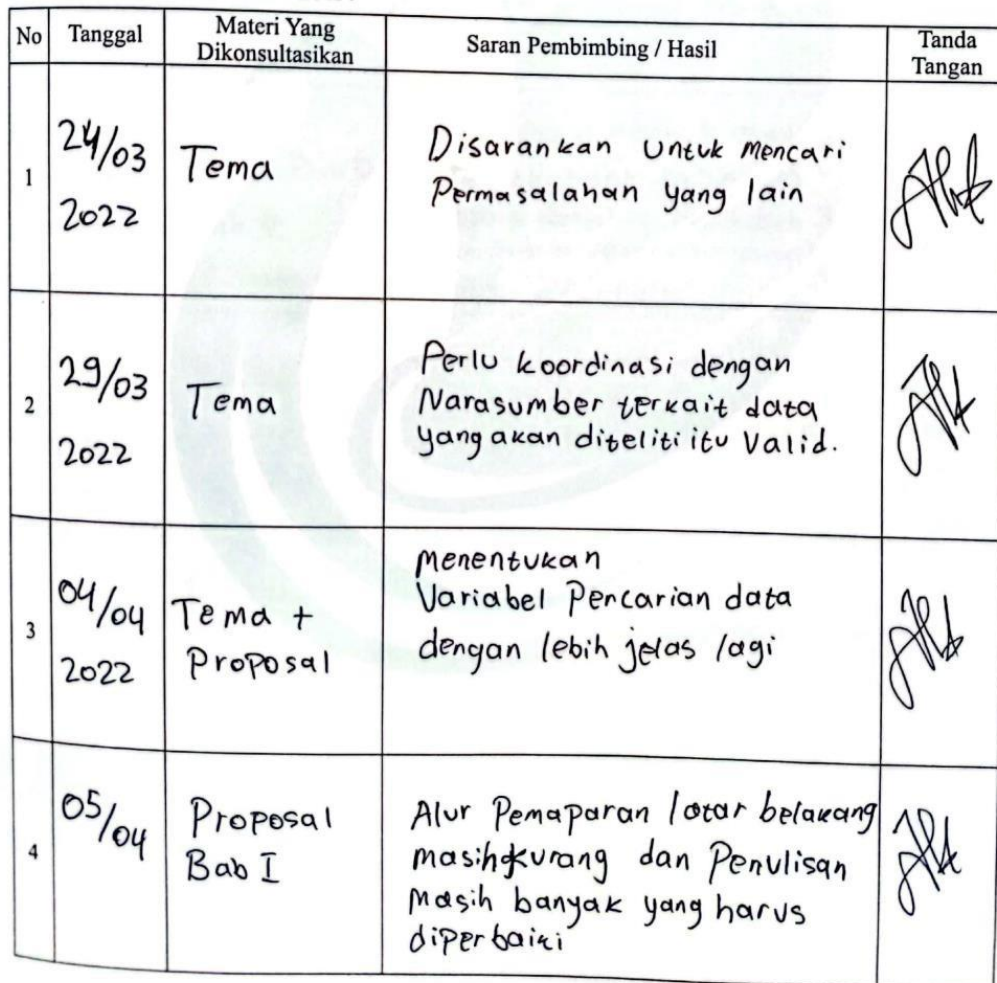 No Tanggal Materi Yang Dikonsultasikan Saran Pembimbing / Hasil Tanda Tangan
1
24/03
2022
Tema
Disarankan untuk mencari
Permasalahan yang lain
2
29/03
2022
Tema
Perlu koordinasi dengan
Narasumber terkait data
yang akan diteliti itu Valid.
3
04/04
2022
Tema +
Proposal
Menentukan
Variabel Pencarian data
dengan lebih jelas lagi
4
05/04
Proposal
Bab I
Alur Pemaparan latar belakang
masih kurang dan Penulisan
masih banyak yang harus
diperbaiki